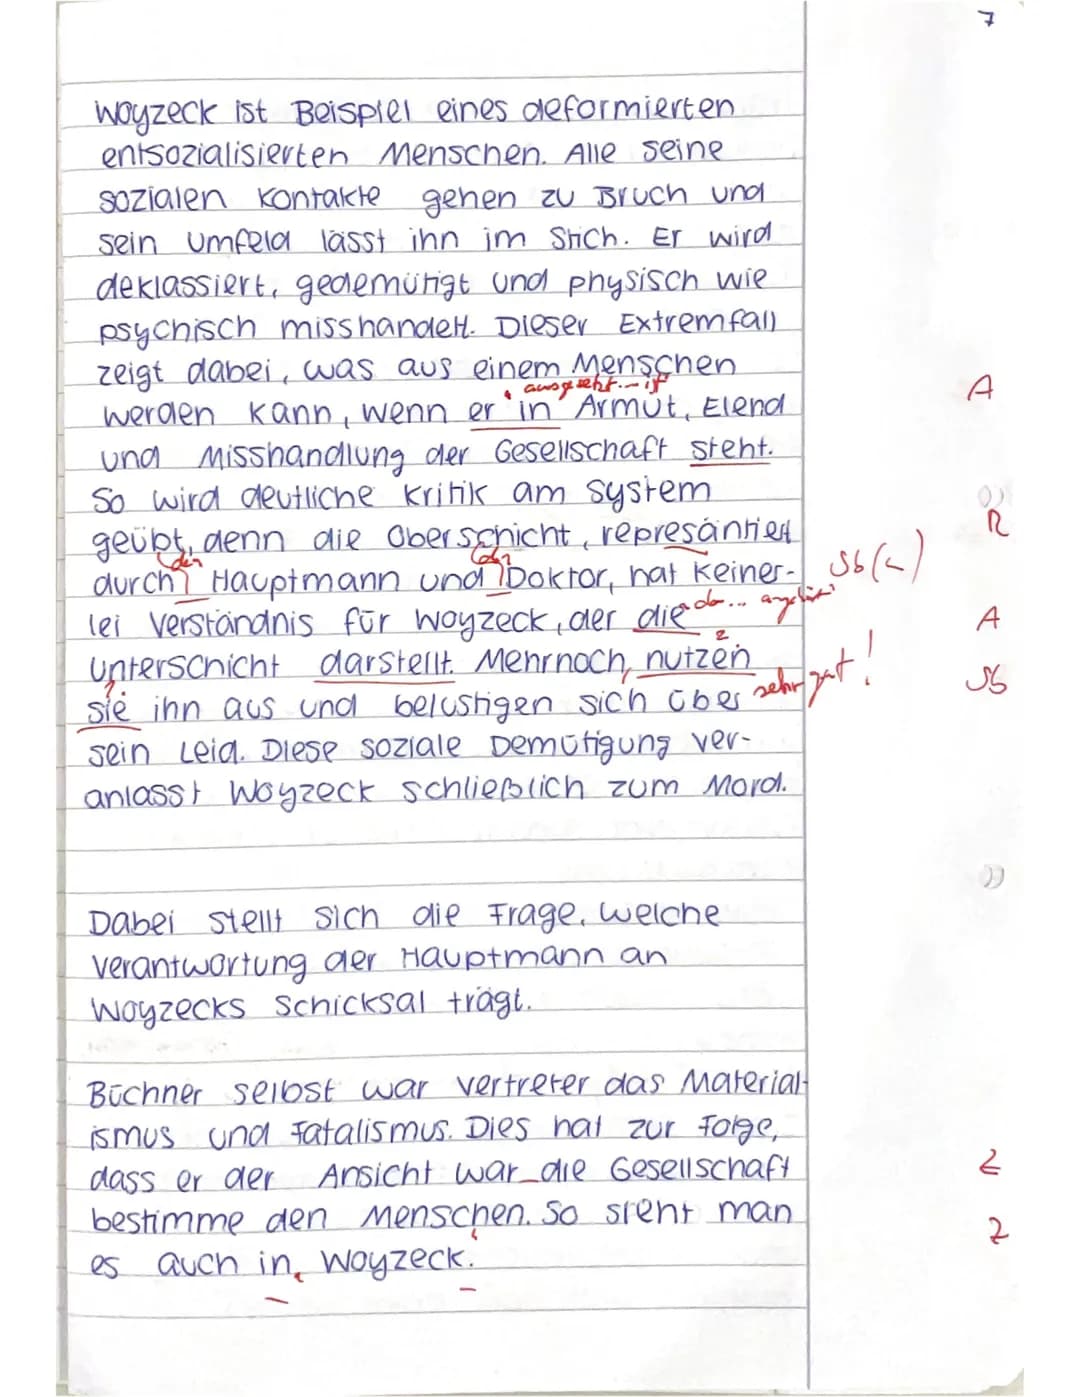 7
Woyzeck ist Beispiel eines deformierten
entsozialisierten Menschen. Alle seine
sozialen Kontakte gehen zu Bruch und
sein Umfeld lässt ihn im Stich. Er wird
deklassiert, gedemütigt und physisch wie
psychisch misshandelt. Dieser Extremfall
zeigt dabei, was aus einem Menschen
ausgesetzt - ist
werden kann, wenn er in Armut, Elend A
und Misshandlung der Gesellschaft steht.
So wird deutliche Kritik am System
geübt, denn die Oberschicht, represäntiert R
den den
durch Hauptmann und Doktor, hat keiner- Sb(-)
lei Verständnis für Woyzeck, der die A
Unterschicht darstellt. Mehrnoch, nutzen sehr gut! Sb
sie ihn aus und belustigen sich über
sein Leid. Diese soziale Demütigung ver-
anlasst Woyzeck schließlich zum Mord.
Dabei stellt sich die Frage, welche
Verantwortung der Hauptmann an
Woyzecks Schicksal trägt.
Büchner selbst war Vertreter das Material-
ismus und Fatalismus. Dies hat zur Folge,
dass er der Ansicht war die Gesellschaft Z
bestimme den Menschen. So sieht man Z
es auch in „Woyzeck“.